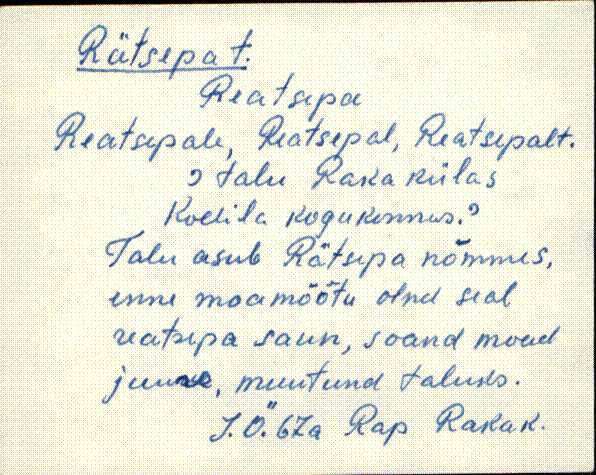 Rätsepa t.
Reatsepa
Reatsepale, Reatsepal, Reatsepalt.
? talu Raka külas
Kodila kogukonnas.?
Talu asub Rätsepa nõmmes,
enne moamõõtu olnd seal
reatsepa saun, soand moad
juure, muutund taluks.
J. Ö. 67a Rap Rakak.